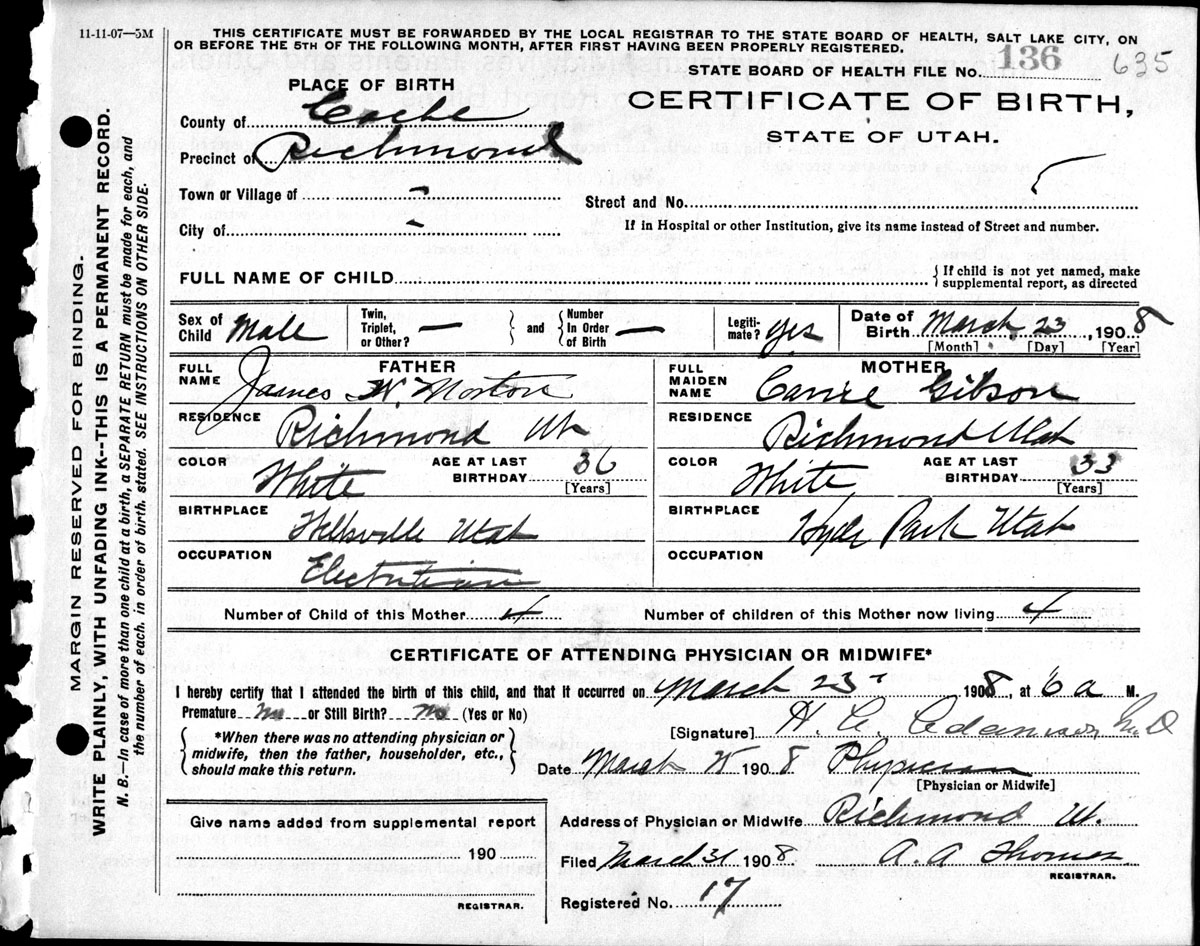 11-11-07—5M
THIS CERTIFICATE MUST BE FORWARDED BY THE LOCAL REGISTRAR TO THE STATE BOARD OF HEALTH, SALT LAKE CITY, ON
OR BEFORE THE 5TH OF THE FOLLOWING MONTH, AFTER FIRST HAVING BEEN PROPERLY REGISTERED.
STATE BOARD OF HEALTH FILE No. 136 635
PLACE OF BIRTH
CERTIFICATE OF BIRTH,
STATE OF UTAH.
County of Cache
Precinct of Richmond
Town or Village of -
Street and No.
City of -
If in Hospital or other Institution, give its name instead of Street and number.
FULL NAME OF CHILD
{If child is not yet named, make
supplemental report, as directed
Sex of Child Male Twin, Triplet, or Other? — } and { Number In Order of Birth — Legiti-mate? yes Date of Birth March 23, 1908
[Month] [Day] [Year]
FATHER
FULL NAME James W. Morton
RESIDENCE Richmond Ut
COLOR White AGE AT LAST BIRTHDAY 36 [Years]
BIRTHPLACE Wellsville Utah
OCCUPATION Electrician
MOTHER
FULL MAIDEN NAME Carrie Gibson
RESIDENCE Richmond Utah
COLOR White AGE AT LAST BIRTHDAY 33 [Years]
BIRTHPLACE Hyde Park Utah
OCCUPATION
Number of Child of this Mother 4 Number of children of this Mother now living 4
CERTIFICATE OF ATTENDING PHYSICIAN OR MIDWIFE*
I hereby certify that I attended the birth of this child, and that it occurred on March 23 1908, at 6 a M.
Premature No or Still Birth? No (Yes or No)
*When there was no attending physician or
midwife, then the father, householder, etc.,
should make this return.
[Signature] H. C. Adamson M.D
Date March 1908 Physician
[Physician or Midwife]
Give name added from supplemental report
190
REGISTRAR.
Address of Physician or Midwife Richmond Ut.
Filed March 31 1908. A. A Thomas
REGISTRAR.
Registered No. 17
MARGIN RESERVED FOR BINDING.
WRITE PLAINLY, WITH UNFADING INK--THIS IS A PERMANENT RECORD.
N. B.—In case of more than one child at a birth, a SEPARATE RETURN must be made for each, and
the number of each, in order of birth, stated. SEE INSTRUCTIONS ON OTHER SIDE.